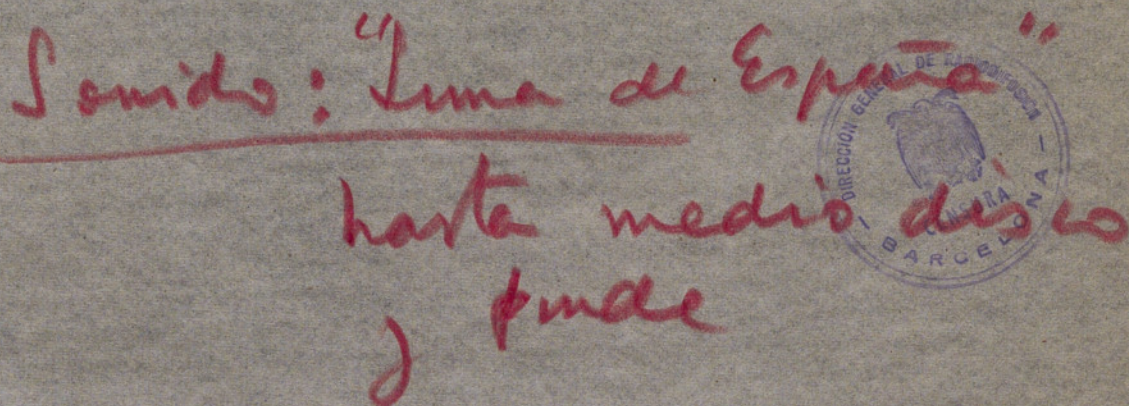 Sonido: "Luna de España"
hasta medio disco
y funde
DIRECCIÓN GENERAL DE RADIODIFUSIÓN
CENSURA
BARCELONA